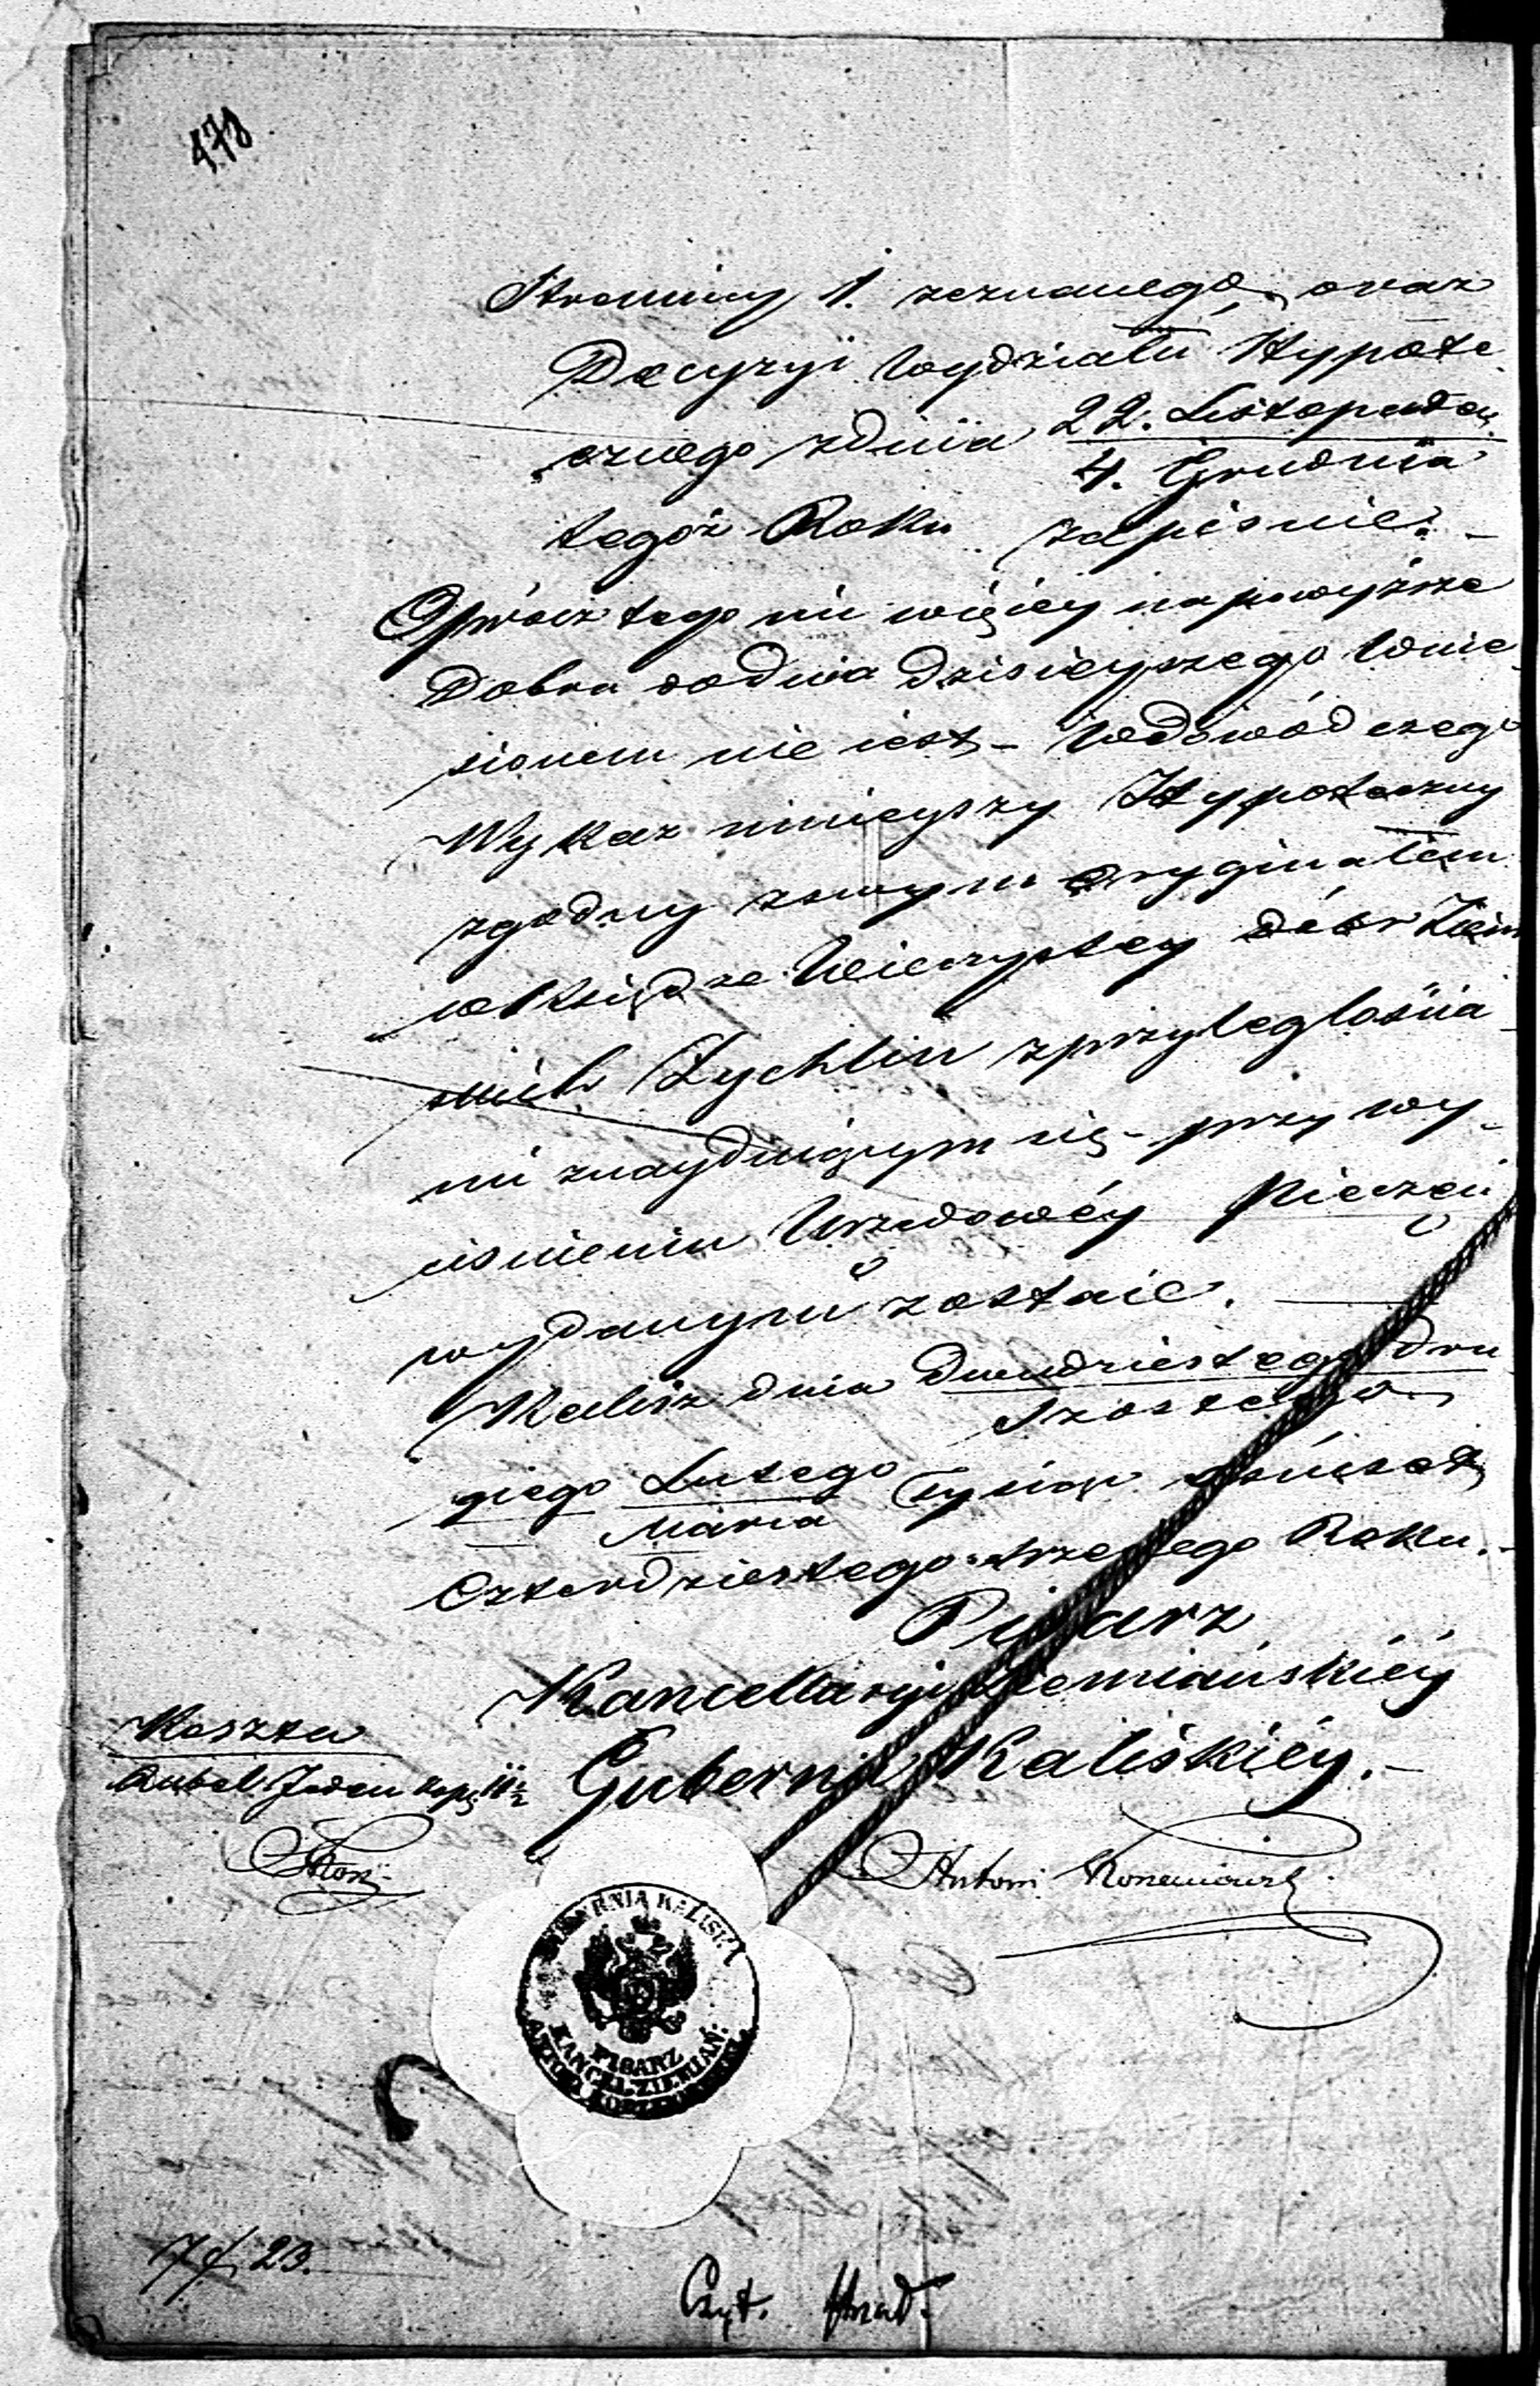 478
Stronicy 1. zeznanego, oraz
Decyzyi Wydziału Hypote-
cznego zdnia 22. Listopada
4. Grudnia
tegoż Roku zapisane. -
Oprócz tego nic więcéy na powyższe
Dobra do dnia dzisieyszego Wnie-
sionem nie iest - Wdowód czego
Wykaz ninieyszy Hypoteczny
zgodny zswym oryginałem
w Księdze Wieczystey dóbr Ziem
skich Żychlin z przyległościa-
mi znayduiącym się - przy wy-
ciśnieniu Urzędowéy Pieczęci
wydanym zostaie. -
Kalisz dnia Dwudziestego dru
Szóstego
giego Lutego Tysiąc ośmset
Marca
Czterdziestego trzeciego Roku. -
Pisarz
Kancellaryi Ziemiańskiéy
Gubernii Kaliskiéy. -
Koszta
Rubel Jeden kop. 11½
Antoni
GUBERNIA KALISKA
PISARZ
KANCEL. ZIEMIAŃ:
ANTONI
7/23.
Czyt.